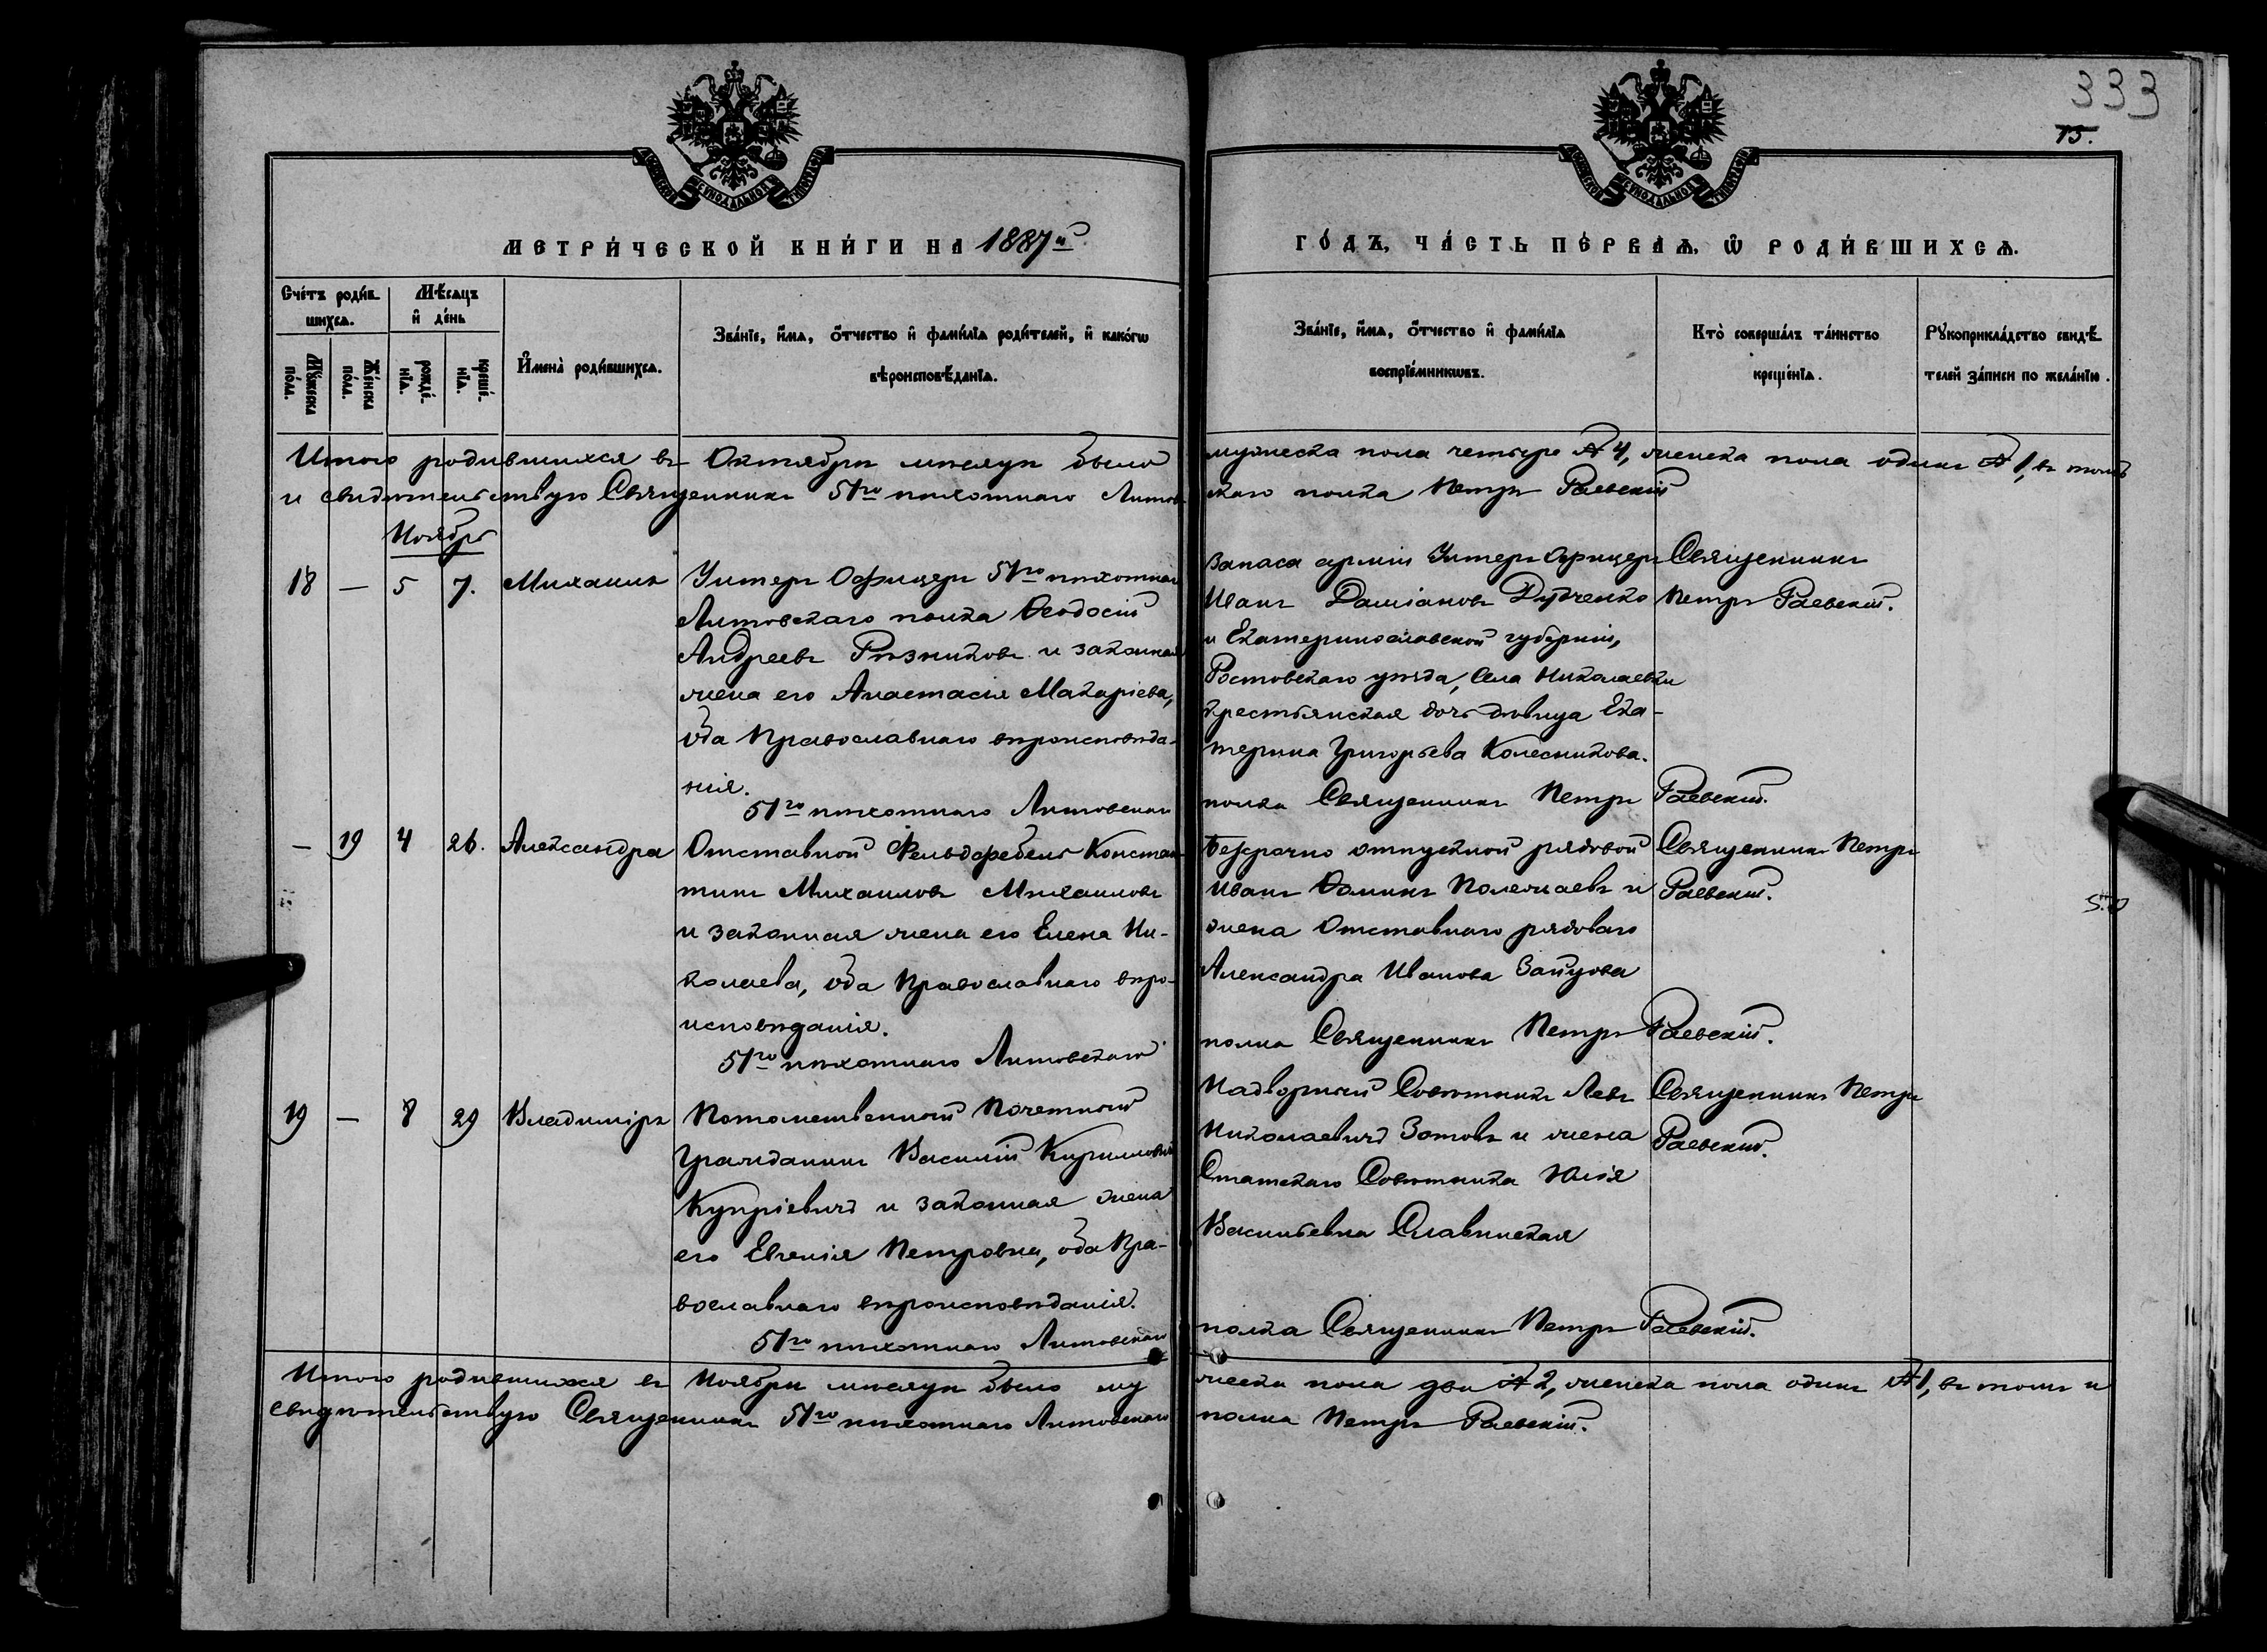 333
15.
МОСКОВСКОЙ СѴНОДАЛЬНОЙ ТИПОГРАФІИ
МОСКОВСКОЙ СѴНОДАЛЬНОЙ ТИПОГРАФІИ
МЕТРИ́ЧЕСКОЙ КНИ́ГИ НА 1887й
ГО́ДЪ, ЧА́СТЬ ПЕ́РВАѦ, Ѡ РОДИ́ВШИХСѦ.
Сче́тъ роди́в-
шихсѧ.
Мꙋ́жеска по́ла.
Же́нска по́ла.
Мѣ́сѧцъ
и де́нь
рожде́-
нїѧ.
креще́-
нїѧ.
Имена̀ роди́вшихсѧ.
Зва́нїе, и́мѧ, о́тчество и фами́лїѧ роди́телей, и како́гѡ
вѣроисповѣ́данїѧ.
Зва́нїе, и́мѧ, о́тчество и фами́лїѧ
воспрїе́мникѡвъ.
Кто̀ соверша́лъ та́инство
креще́нїѧ.
Рꙋкоприкла́дство свидѣ́-
телей за́писи по жела́нїю.
Итого родившихся въ Октябрѣ мѣсяцѣ было мужеска пола четыре № 4, женска пола одинъ № 1, въ томъ
и свидѣтельствую Священникъ 51го пѣхотнаго Литовскаго полка Петръ Раевскій
Ноябрь
18 — 5 7. Михаилъ
Унтеръ Офицеръ 51го пѣхотнаго
Литовскаго полка Ѳеодосій
Андреевъ Рѣзниковъ и законная
жена его Анастасія Макаріева,
оба Православнаго вѣроисповѣда-
нія.
Запаса арміи Унтеръ Офицеръ
Иванъ Даміановъ Дудченко
и Екатеринославской губерніи,
Ростовскаго уѣзда, Села Николаевки
крестьянская дочь дѣвица Ека-
терина Григорьева Колесникова.
Священникъ
Петръ Раевскій.
51го пѣхотнаго Литовскаго полка Священникъ Петръ Раевскій.
— 19 4 26. Александра
Отставной Фельдфебель Констан-
тинъ Михаиловъ Михаиловъ
и законная жена его Елена Ни-
колаева, оба Православнаго вѣро-
исповѣданія.
Безсрочно отпускной рядовой
Иванъ Ѳоминъ Полежаевъ и
жена Отставнаго рядоваго
Александра Иванова Зайцова
Священникъ Петръ
Раевскій.
51го пѣхотнаго Литовскаго полка Священникъ Петръ Раевскій.
19 — 8 29 Владиміръ
Потомственный Почетный
Гражданинъ Василій Кирилловичъ
Купріевичъ и законная жена
его Евгенія Петровна, оба Пра-
вославнаго вѣроисповѣданія.
Надворный Совѣтникъ Левъ
Николаевичъ Зотовъ и жена
Статскаго Совѣтника Юлія
Васильевна Славинская
Священникъ Петръ
Раевскій.
51го пѣхотнаго Литовскаго полка Священникъ Петръ Раевскій.
Итого родившихся въ Ноябрѣ мѣсяцѣ было мужеска пола два № 2, женска пола одинъ № 1, въ томъ и
свидѣтельствую Священникъ 51го пѣхотнаго Литовскаго полка Петръ Раевскій.